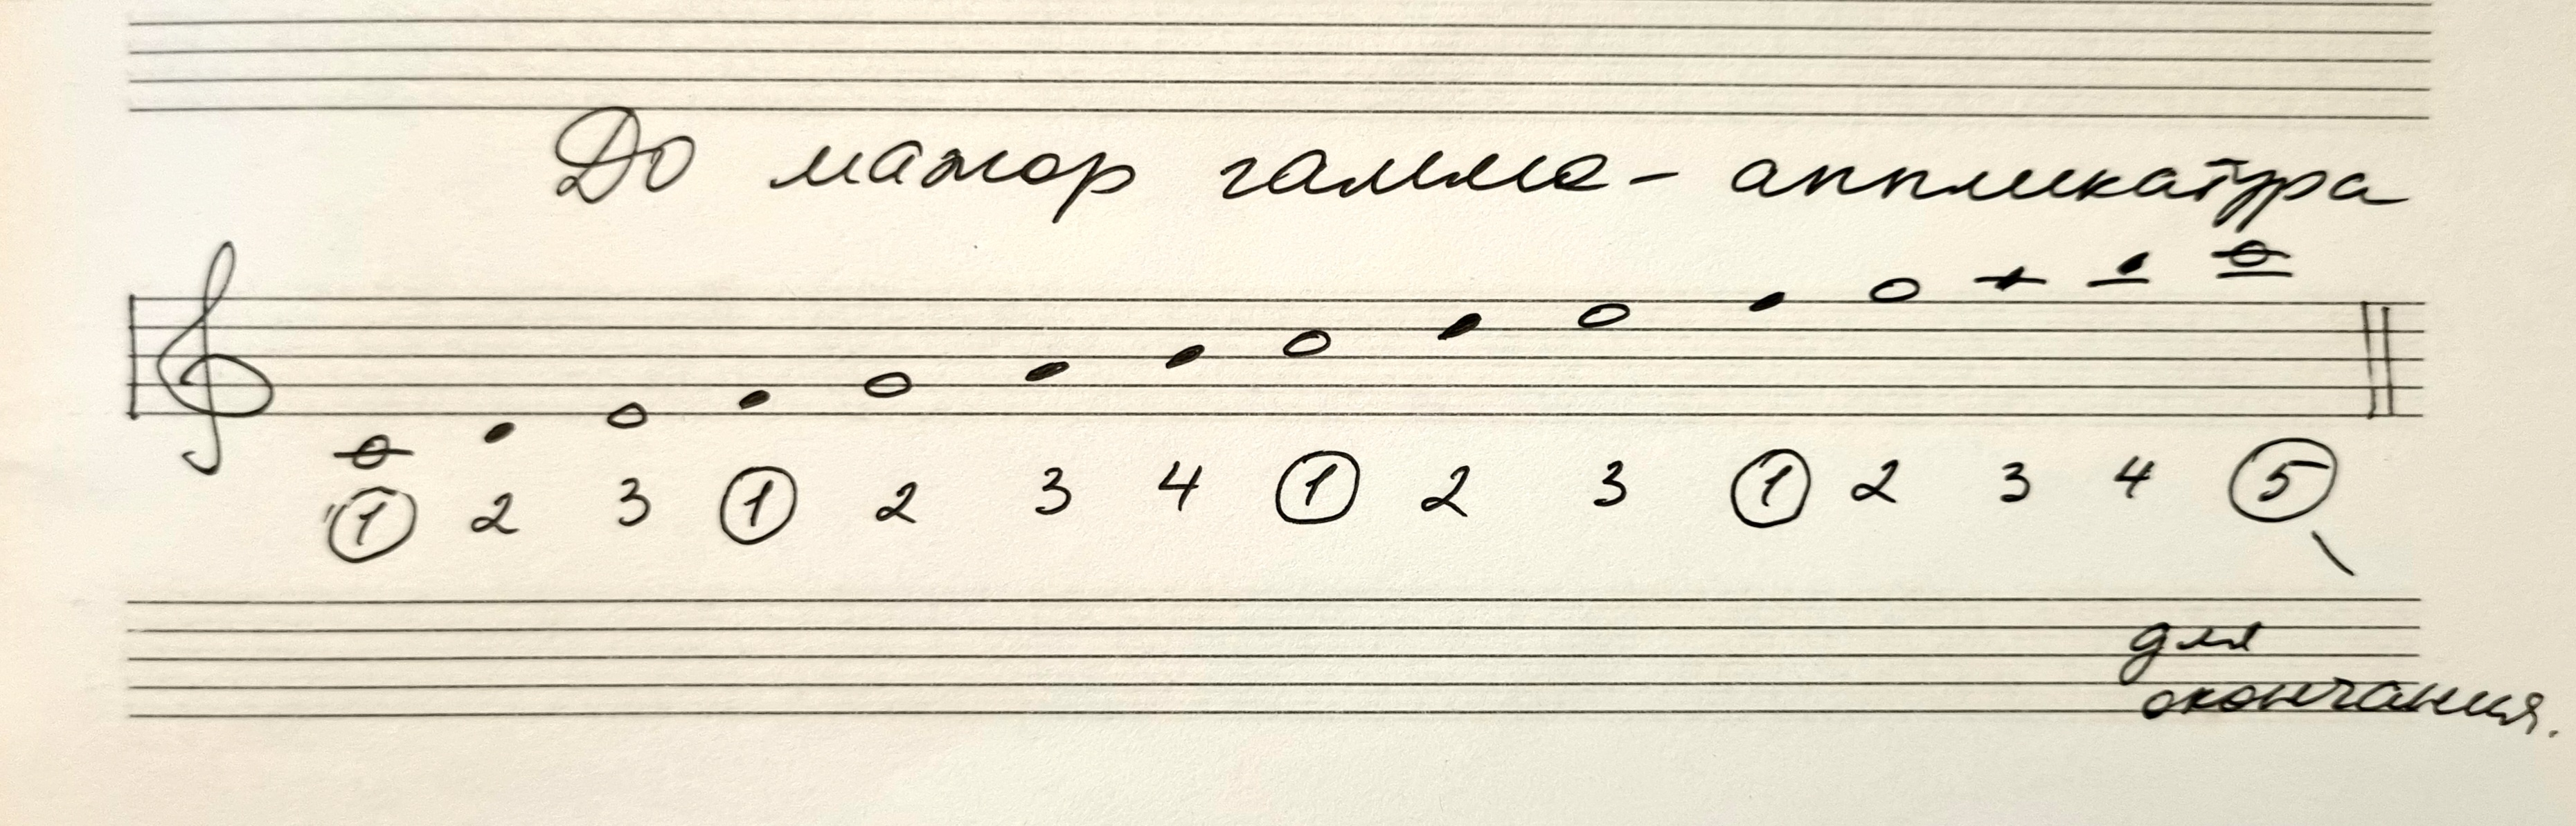 До мажор гамма - аппликатура
1 2 3 1 2 3 4 1 2 3 1 2 3 4 5
для
окончания.